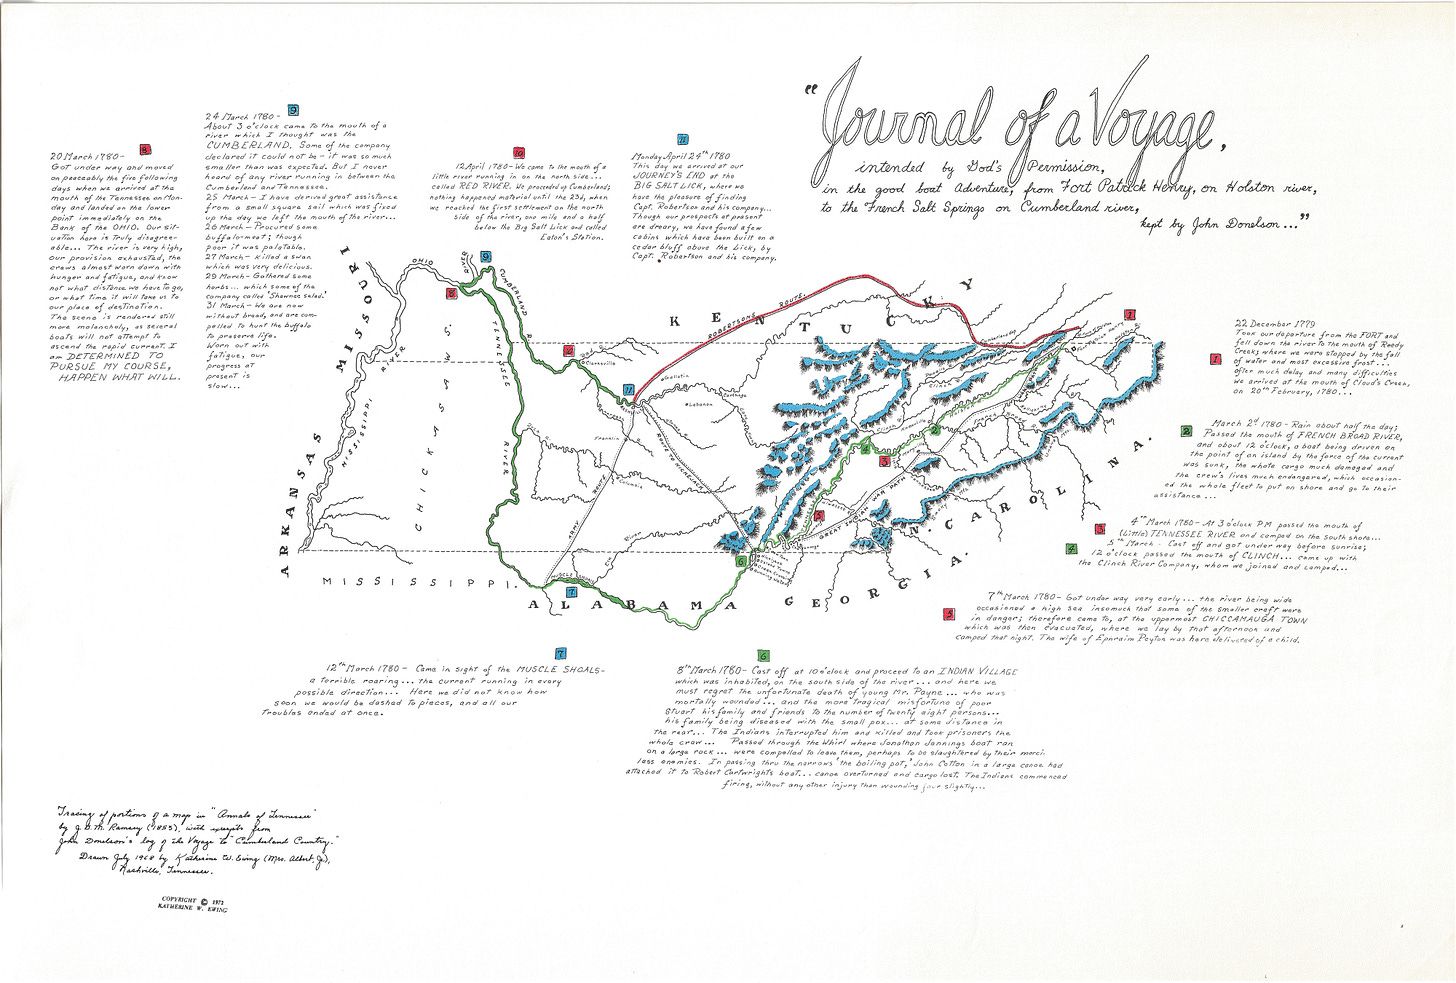 "Journal of a Voyage,
intended by God's Permission,
in the good boat Adventure, from Fort Patrick Henry, on Holston river,
to the French Salt Springs on Cumberland river,
kept by John Donelson..."
8
20 March 1780-
Got under way and moved
on peaceably the five following
days when we arrived at the
mouth of the Tennessee on Mon-
day and landed on the lower
point immediately on the
Bank of the OHIO. Our sit-
uation here is truly disagree-
able... The river is very high,
our provision exhausted, the
crews almost worn down with
hunger and fatigue, and know
not what distance we have to go,
or what time it will take us to
our place of destination.
The scene is rendered still
more melancholy, as several
boats will not attempt to
ascend the rapid current. I
am DETERMINED TO
PURSUE MY COURSE,
HAPPEN WHAT WILL.
9
24 March 1780-
About 3 o'clock came to the mouth of a
river which I thought was the
CUMBERLAND. Some of the company
declared it could not be - it was so much
smaller than was expected. But I never
heard of any river running in between the
Cumberland and Tennessee.
25 March - I have derived great assistance
from a small square sail which was fixed
up the day we left the mouth of the river...
26 March - Procured some
buffalo-meat; though
poor it was palatable.
27 March - Killed a swan
which was very delicious.
29 March - Gathered some
herbs... which some of the
company called 'Shawnee salad.'
31 March - We are now
without bread, and are com-
pelled to hunt the buffalo
to preserve life.
Worn out with
fatigue, our
progress at
present is
slow...
10
12 April 1780 - We come to the mouth of a
little river running in on the north side...
called RED RIVER. We proceeded up Cumberland;
nothing happened material until the 23d, when
we reached the first settlement on the north
side of the river, one mile and a half
below the Big Salt Lick and called
Eaton's Station.
11
Monday April 24th 1780
This day we arrived at our
JOURNEY'S END at the
BIG SALT LICK, where we
have the pleasure of finding
Capt. Robertson and his company...
Though our prospects at present
are dreary, we have found a few
cabins which have been built on a
cedar bluff above the Lick, by
Capt. Robertson and his company.
1
22 December 1779
Took our departure from the FORT and
fell down the river to the mouth of Reedy
Creek; where we were stopped by the fall
of water and most excessive frost...
after much delay and many difficulties
we arrived at the mouth of Cloud's Creek,
on 20th February, 1780...
2
March 2d 1780 - Rain about half the day;
Passed the mouth of FRENCH BROAD RIVER,
and about 12 o'clock, a boat being driven on
the point of an island by the force of the current
was sunk, the whole cargo much damaged and
the crew's lives much endangered, which occasion-
ed the whole fleet to put on shore and go to their
assistance...
3
4th March 1780 - At 3 o'clock P.M passed the mouth of
(Little) TENNESSEE RIVER and camped on the south shore...
4
5th March - Cast off and got under way before sunrise;
12 o'clock passed the mouth of CLINCH... came up with
the Clinch River Company, whom we joined and camped...
5
7th March 1780 - Got under way very early... the river being wide
occasioned a high sea insomuch that some of the smaller craft were
in danger; therefore came to, at the uppermost CHICCAMAUGA TOWN
which was then evacuated, where we lay by that afternoon and
camped that night. The wife of Ephraim Peyton was here delivered of a child.
6
8th March 1780 - Cast off at 10 o'clock and proceed to an INDIAN VILLAGE
which was inhabited, on the south side of the river... and here we
must regret the unfortunate death of young Mr. Payne... who was
mortally wounded... and the more tragical misfortune of poor
Stuart his family and friends to the number of twenty eight persons...
his family being diseased with the small pox... at some distance in
the rear... The Indians interrupted him and killed and took prisoners the
whole crew... Passed through the Whirl where Jonathan Jennings boat ran
on a large rock... were compelled to leave them, perhaps to be slaughtered by their merci-
less enemies. In passing thru the narrows 'the boiling pot,' John Cotton in a large canoe had
attached it to Robert Cartwright's boat... canoe overturned and cargo lost. The Indians commenced
firing, without any other injury than wounding four slightly...
7
12th March 1780 - Came in sight of the MUSCLE SHOALS-
a terrible roaring... the current running in every
possible direction... Here we did not know how
soon we would be dashed to pieces, and all our
troubles ended at once.
MISSOURI
ARKANSAS
MISSISSIPPI
RIVER
CHICKASAWS.
OHIO
RIVER
CUMBERLAND
R.
TENNESSEE
RIVER
KENTUCKY
ROBERTSONS ROUTE
Clarksville
Gallatin
Lebanon
Carthage
Franklin
Columbia
ARMY ROUTE
GREAT INDIAN WAR PATH
Clinch
N. CAROLINA.
GEORGIA.
ALABAMA
MISSISSIPPI.
MUSCLE SHOALS
1
2
3
4
5
6
7
8
9
10
11
Tracing of portions of a map in "Annals of Tennessee"
by J.G.M. Ramsey (1853), with excerpts from
John Donelson's log of the Voyage to "Cumberland Country."
Drawn July 1968 by Katherine W. Ewing (Mrs. Albert, Jr.),
Nashville, Tennessee.
COPYRIGHT © 1972
KATHERINE W. EWING